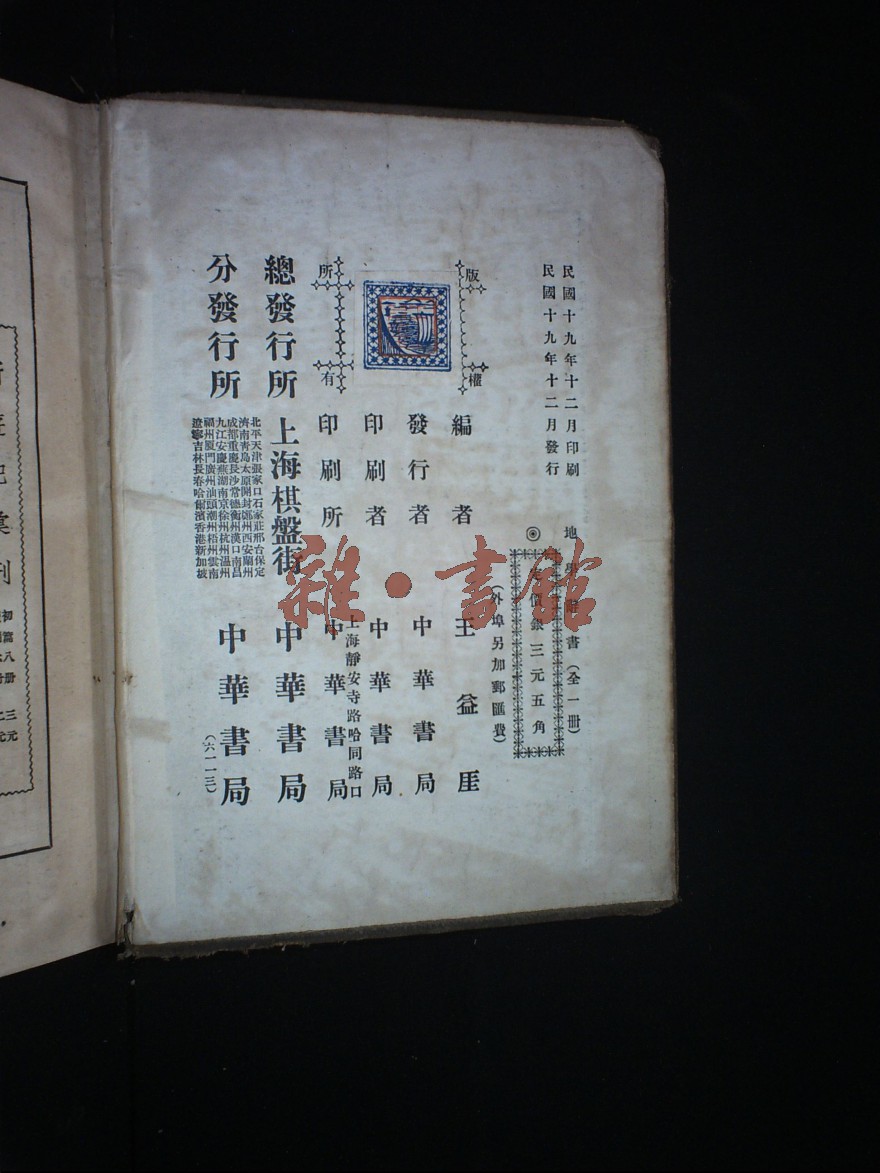 民國十九年十二月印刷
民國十九年十二月發行
地學辭書(全一冊)
◎定價銀三元五角
(外埠另加郵匯費)
版權所有
編者 王益厓
發行者 中華書局
印刷者 中華書局
上海靜安寺路哈同路口
印刷所 中華書局
總發行所 上海棋盤街 中華書局
分發行所
北平天津張家口石家莊邢台保定
濟南青島太原開封鄭州西安蘭州
成都重慶長沙常德衡州漢口南昌
九江安慶蕪湖南京徐州杭州溫州
福州厦門廣州汕頭潮州梧州雲南
遼寧吉林長春哈爾濱香港新加坡
中華書局
(六一一三)
雜·書館
彙刊
初
八冊
三元
元